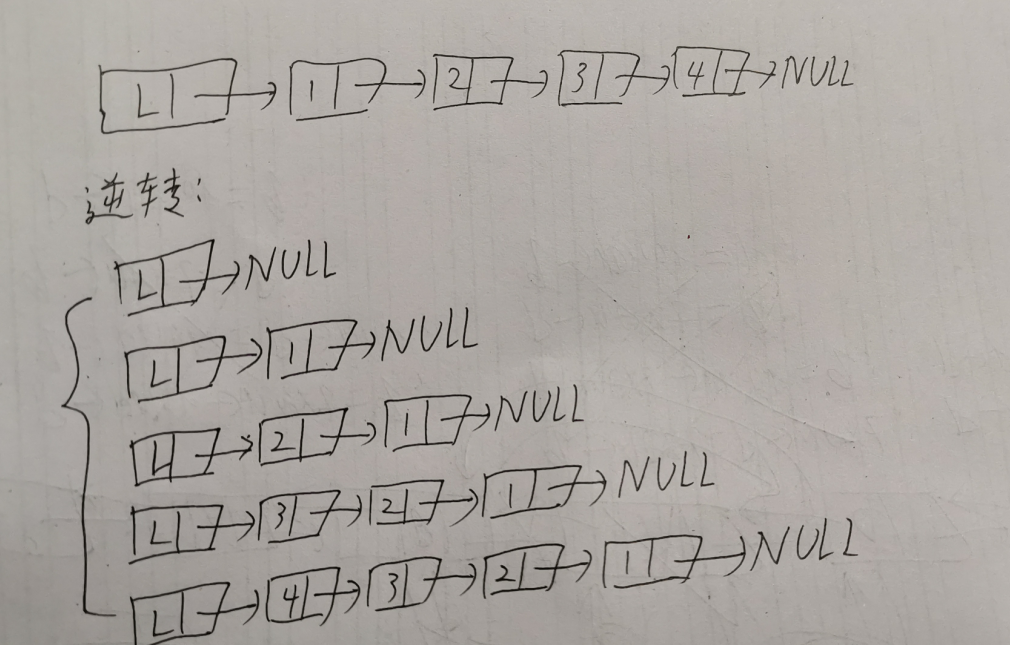 L 1 2 3 4 NULL
逆转:
L NULL
L 1 NULL
L 2 1 NULL
L 3 2 1 NULL
L 4 3 2 1 NULL